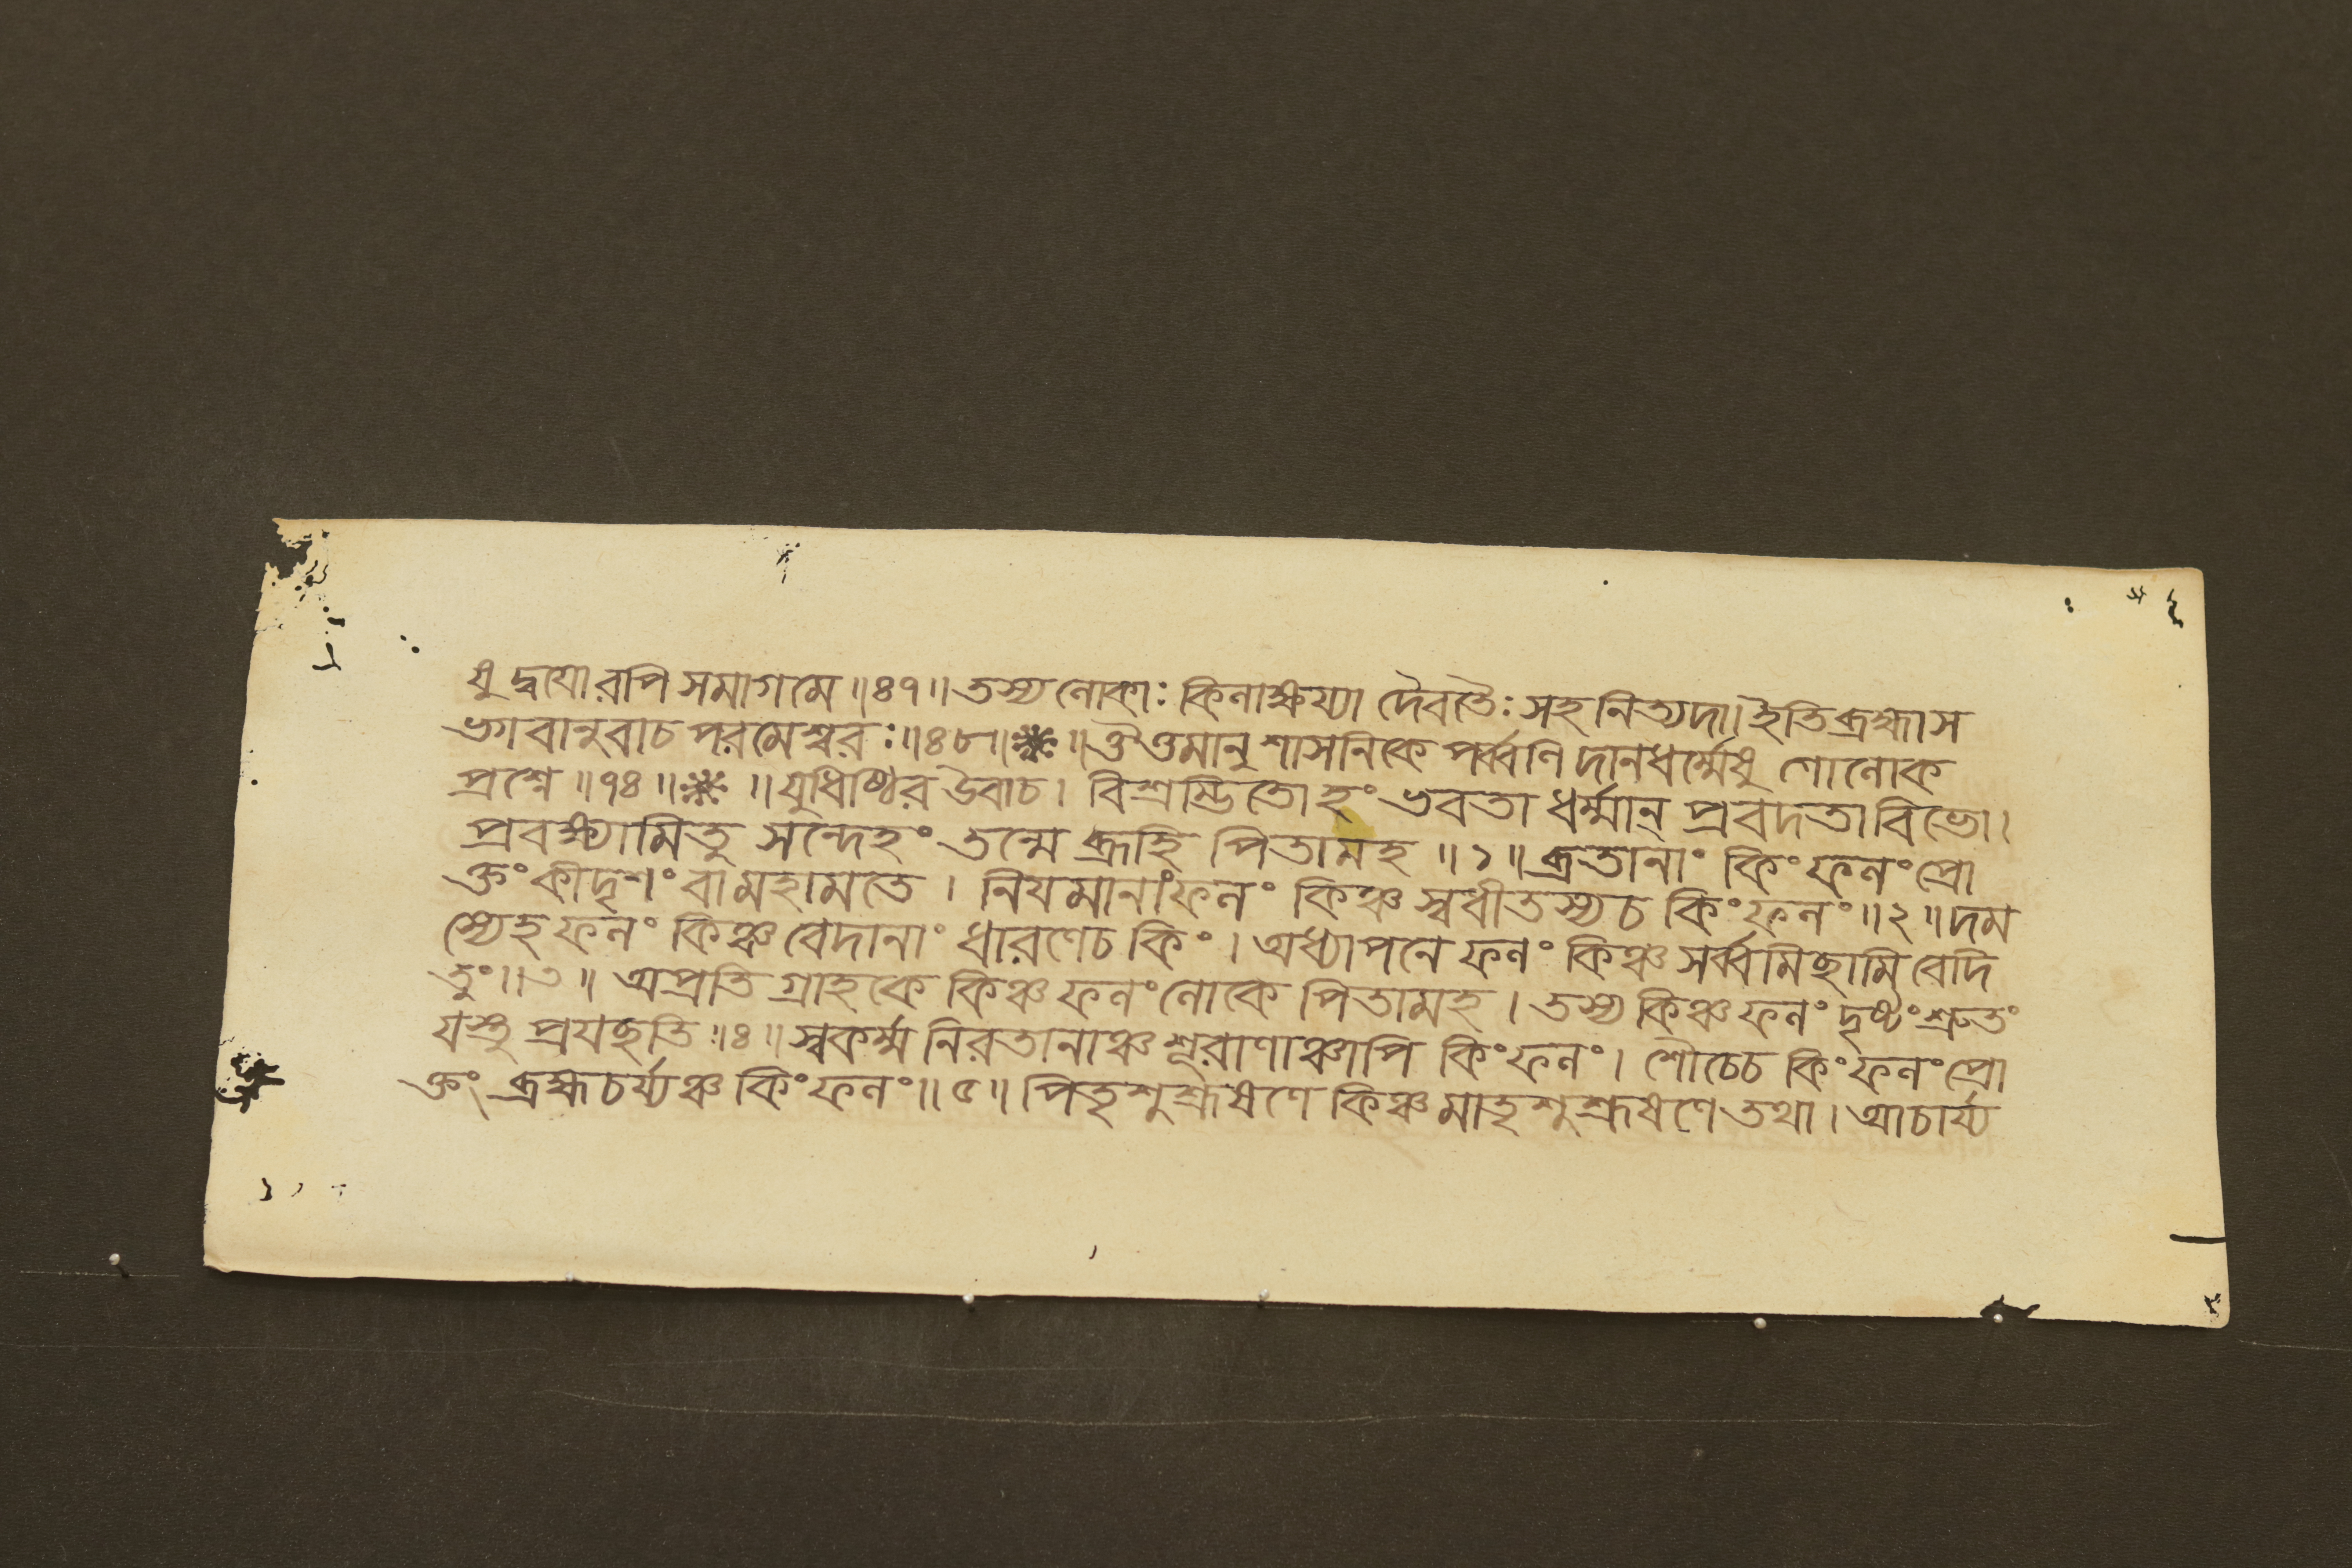 যু দ্বযোরপি সমাগমে ॥৪৭॥ তস্য লোকাঃ কিলাক্ষয্যা দৈবতৈঃ সহ নিত্যদা। ইতি ব্রহ্মা স
ভগবানুবাচ পরমেশ্বরঃ ॥৪৮॥ ❋ ॥ ঔত্তমানুশাসনিকে পর্ব্বনি দানধর্ম্মেষু গোলোক
প্রশ্নে ॥৭৪॥ ❋ ॥ যুধিষ্ঠির উবাচ। বিশ্রম্ভিতোহং ভবতা ধর্ম্মান্ প্রবদতা বিভো।
প্রবক্ষ্যামি তু সন্দেহং তন্মে ব্রূহি পিতামহ ॥১॥ ব্রতানাং কিং ফলং প্রো
ক্তং কীদৃশং বা মহামতে। নিযমানাং ফলং কিঞ্চ স্বধীতস্য চ কিং ফলং ॥২॥ দম
স্যেহ ফলং কিঞ্চ বেদানাং ধারণে চ কিং। অধ্যাপনে ফলং কিঞ্চ সর্ব্বমিছামি বেদি
তুং ॥৩॥ অপ্রতিগ্রাহকে কিঞ্চ ফলং লোকে পিতামহ। তস্য কিঞ্চ ফলং দৃষ্টং শ্রুতং
যস্তু প্রযছতি ॥৪॥ স্বকর্ম্ম নিরতানাঞ্চ শূরাণাঞ্চাপি কিং ফলং। শৌচে চ কিং ফলং প্রো
ক্তং ব্রহ্মচর্য্যঞ্চ কিং ফলং ॥৫॥ পিতৃশুশ্রূষণে কিঞ্চ মাতৃশুশ্রূষণে তথা। আচার্য্য